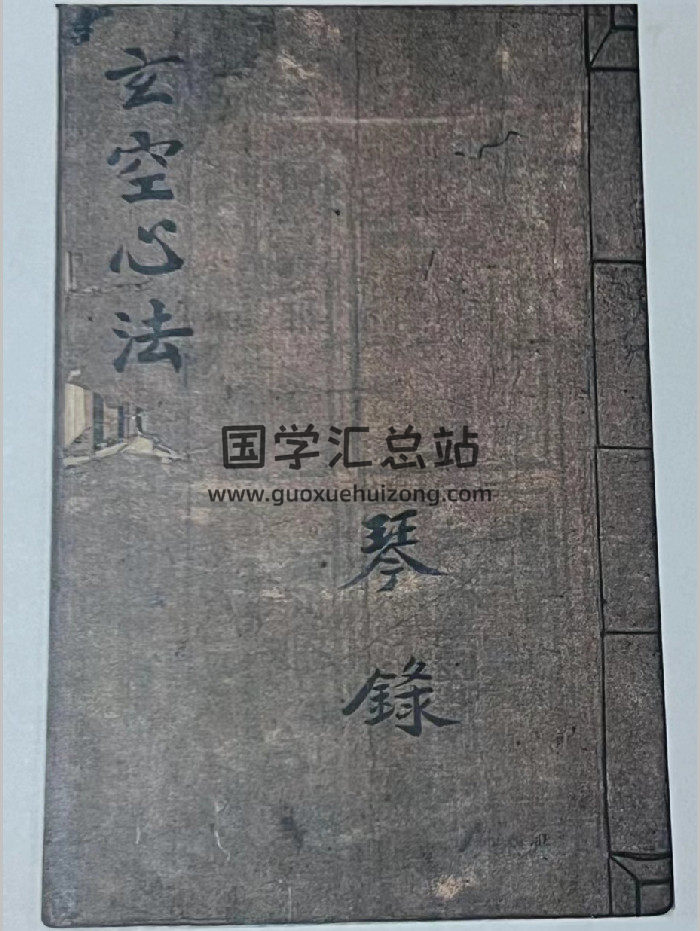 玄空心法
国学汇总站
www.guoxuehuizong.com
琴錄